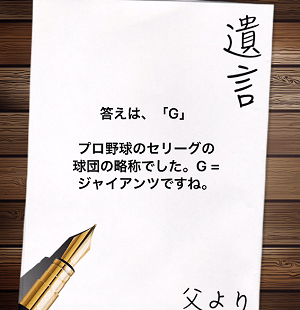 遺言
答えは、「G」
プロ野球のセリーグの
球団の略称でした。G =
ジャイアンツですね。
父より